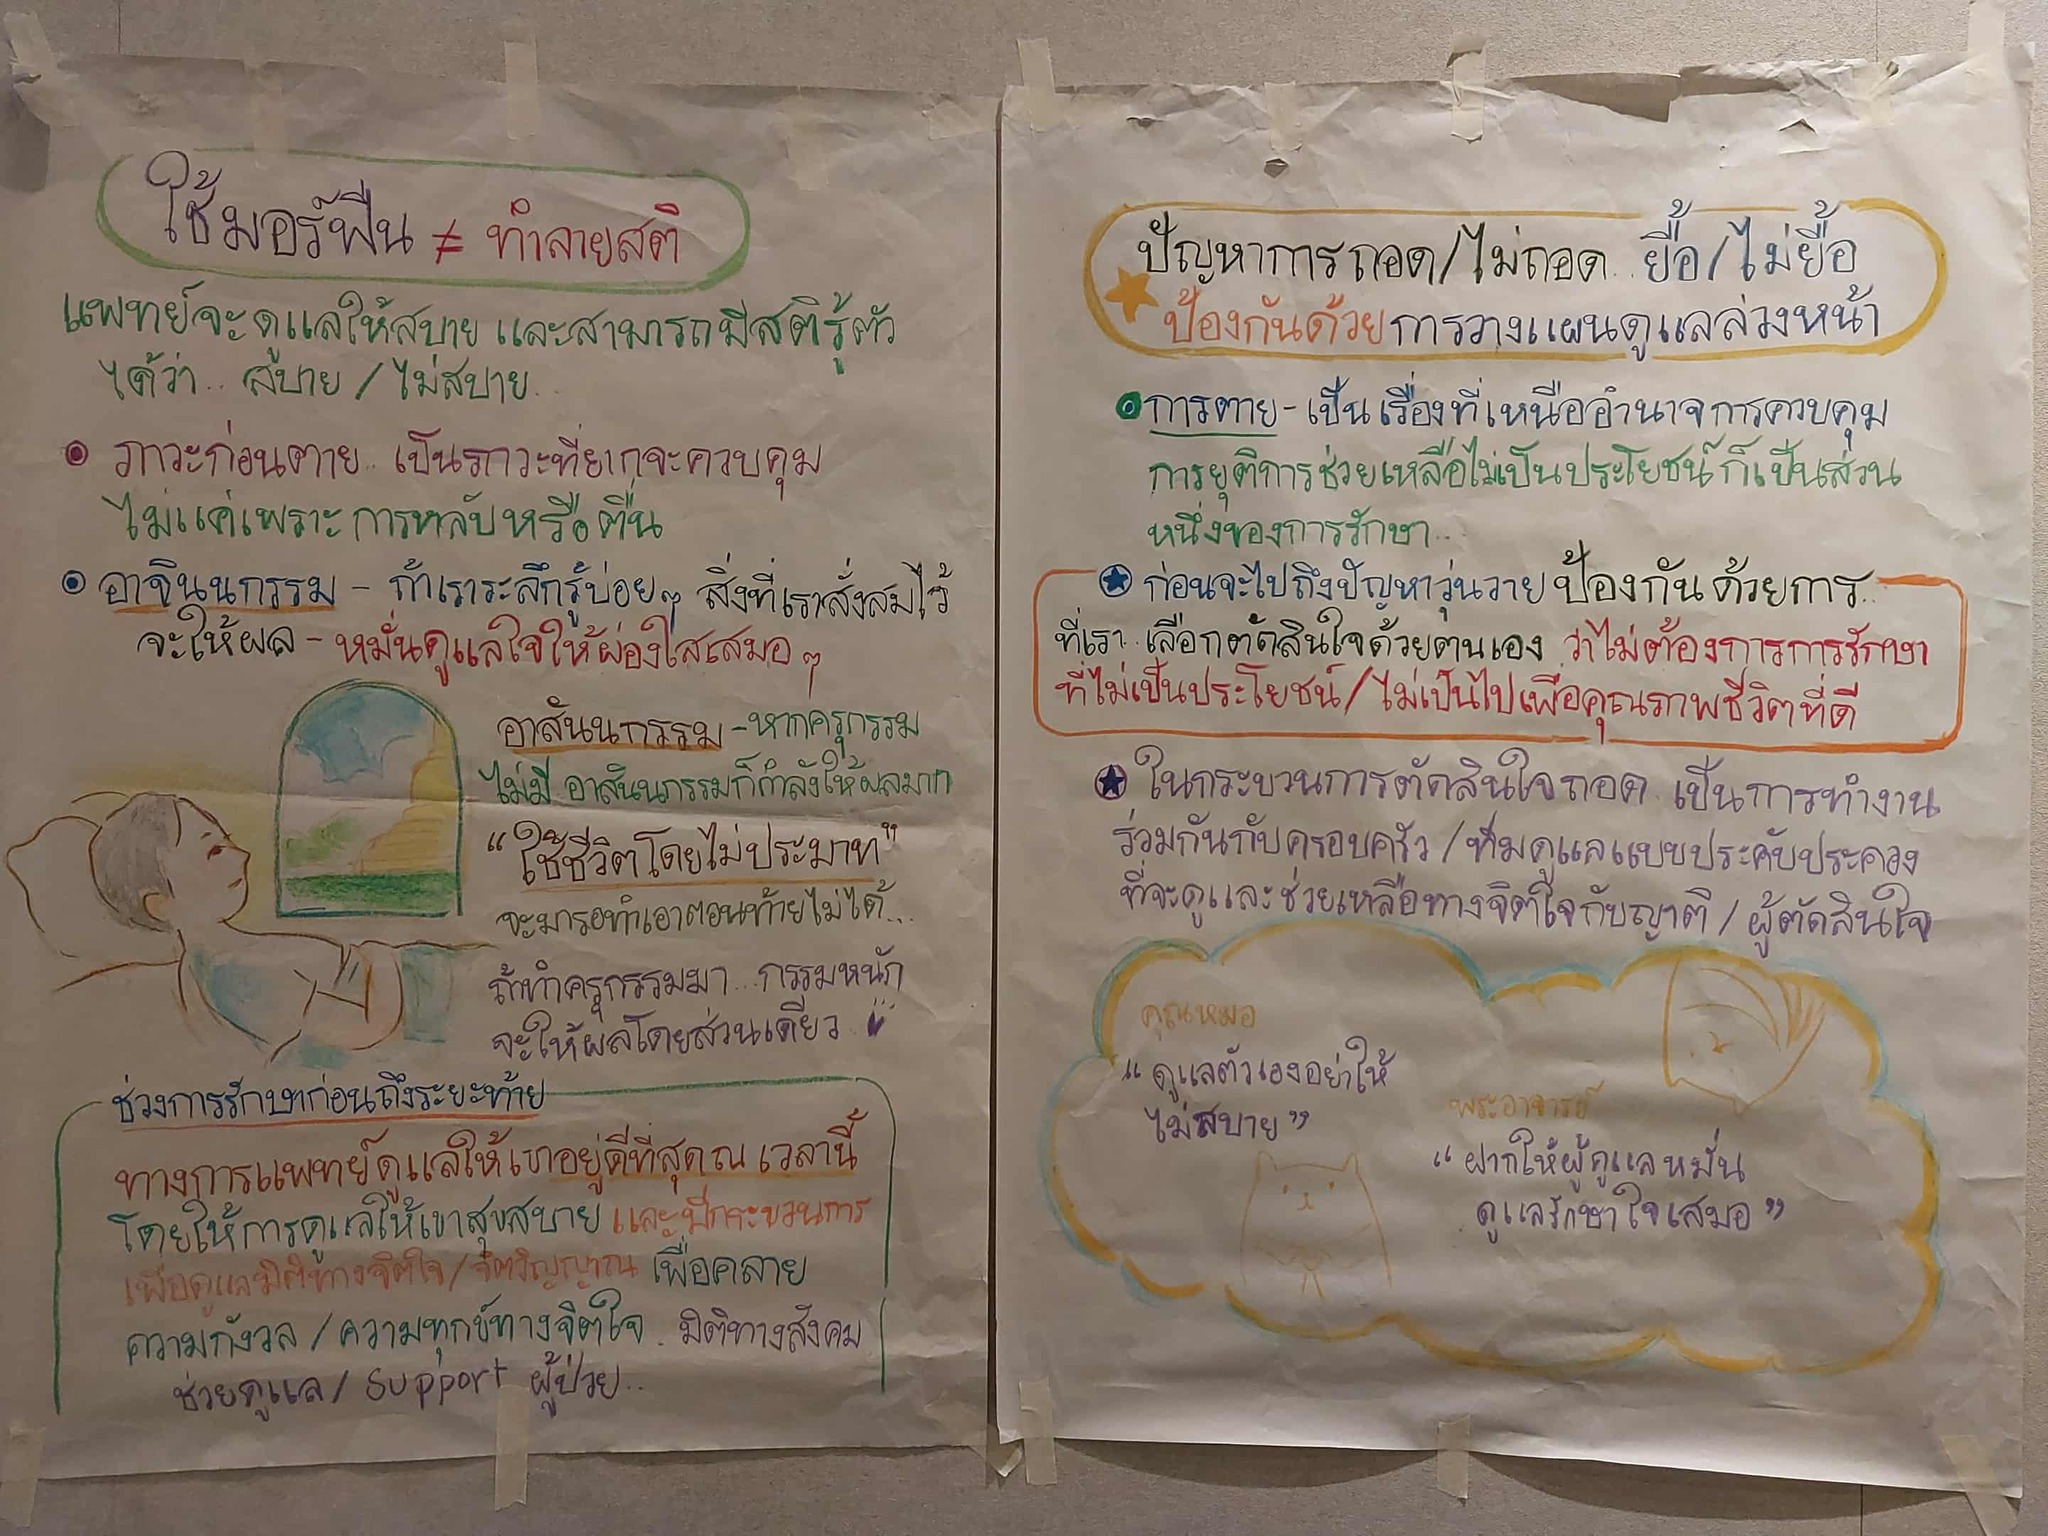 ใช้มอร์ฟีน ≠ ทำลายสติ
แพทย์จะดูแลให้สบาย และสามารถมีสติรู้ตัว
ได้ว่า.. สบาย / ไม่สบาย..
• ภาวะก่อนตาย.. เป็นภาวะที่ยากจะควบคุม
ไม่แค่เพราะการหลับหรือตื่น
• อาจิณนกรรม - ถ้าเราระลึกรู้บ่อยๆ สิ่งที่เราสั่งสมไว้
จะให้ผล - หมั่นดูแลใจให้ผ่องใสเสมอๆ
อาสันนกรรม - หากครุกรรม
ไม่มี อาสันนกรรมก็กำลังให้ผลมาก
"ใช้ชีวิตโดยไม่ประมาท"
จะมารอทำเอาตอนท้ายไม่ได้...
ถ้าทำครุกรรมมา... กรรมหนัก
จะให้ผลโดยส่วนเดียว !!
ช่วงการรักษาก่อนถึงระยะท้าย
ทางการแพทย์ดูแลให้เขาอยู่ดีที่สุดณ เวลานี้
โดยให้การดูแลให้เขาสุขสบาย และมีกระบวนการ
เพื่อดูแลมิติทางจิตใจ / จิตวิญญาณ เพื่อคลาย
ความกังวล / ความทุกข์ทางจิตใจ. มิติทางสังคม
ช่วยดูแล / Support ผู้ป่วย..
ปัญหาการถอด / ไม่ถอด.. ยื้อ / ไม่ยื้อ
ป้องกันด้วยการวางแผนดูแลล่วงหน้า
• การตาย - เป็นเรื่องที่เหนืออำนาจการควบคุม
การยุติการช่วยเหลือไม่เป็นประโยชน์ ก็เป็นส่วน
หนึ่งของการรักษา..
ก่อนจะไปถึงปัญหาวุ่นวาย ป้องกันด้วยการ..
ที่เรา.. เลือกตัดสินใจด้วยตนเอง ว่าไม่ต้องการการรักษา
ที่ไม่เป็นประโยชน์ / ไม่เป็นไปเพื่อคุณภาพชีวิตที่ดี
ในกระบวนการตัดสินใจถอด.. เป็นการทำงาน
ร่วมกันกับครอบครัว / ทีมดูแลแบบประคับประคอง
ที่จะดูแลและช่วยเหลือทางจิตใจกับญาติ / ผู้ตัดสินใจ
คุณหมอ
"ดูแลตัวเองอย่าให้
ไม่สบาย"
พระอาจารย์
"ฝากให้ผู้ดูแลหมั่น
ดูแลรักษาใจเสมอ"